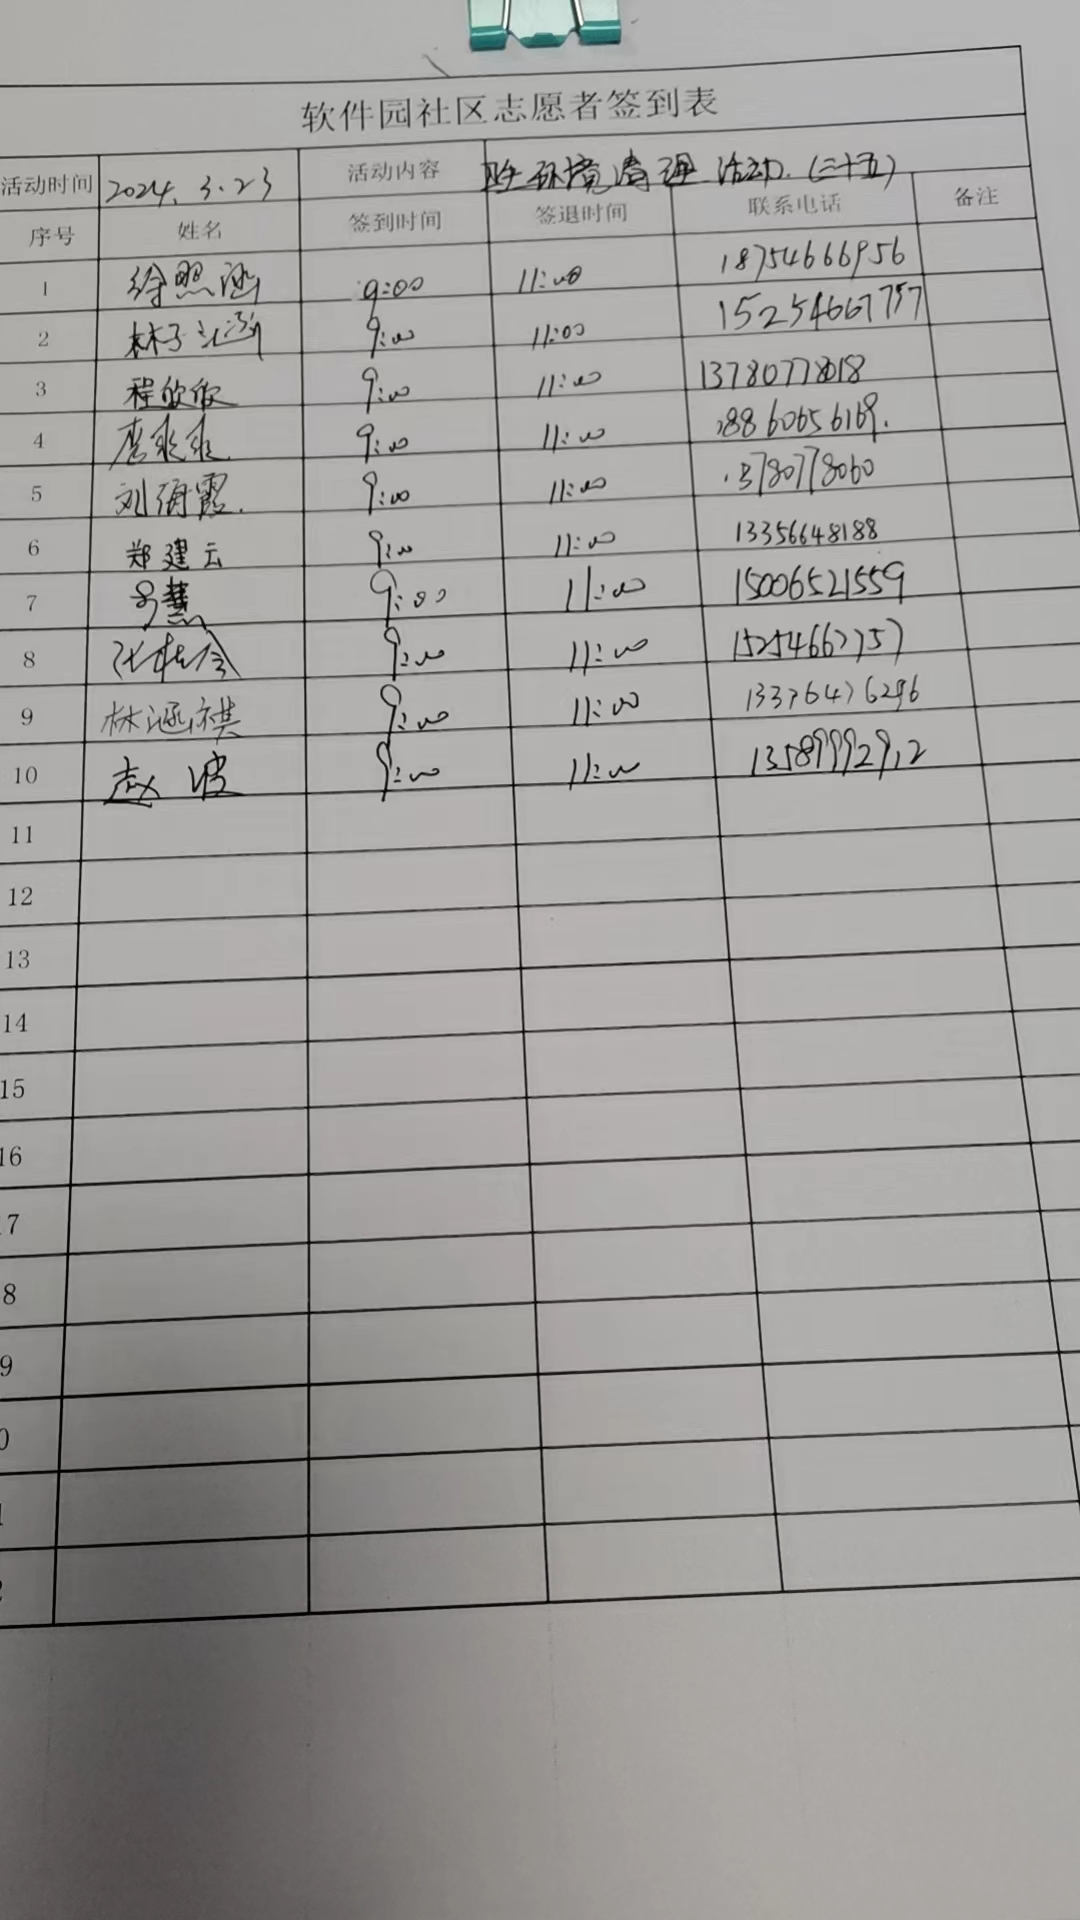 软件园社区志愿者签到表
活动时间 2024.3.23 活动内容 环境清理活动.(三十五)
序号 姓名 签到时间 签退时间 联系电话 备注
1 徐照涵 9:00 11:00 18754666956
2 林子涵 9:00 11:00 15254667757
3 程欣欣 9:00 11:00 13780778018
4 唐乖乖 9:00 11:00 18860656169.
5 刘海霞. 9:00 11:00 13780778060
6 郑建云 9:00 11:00 13356648188
7 慧 9:00 11:00 15006521559
8 张桂 9:00 11:00 15254667757
9 林涵祺 9:00 11:00 13376476296
10 赵波 9:00 11:00 13589992912
11
12
13
14
15
16
7
8
9
0
1
2